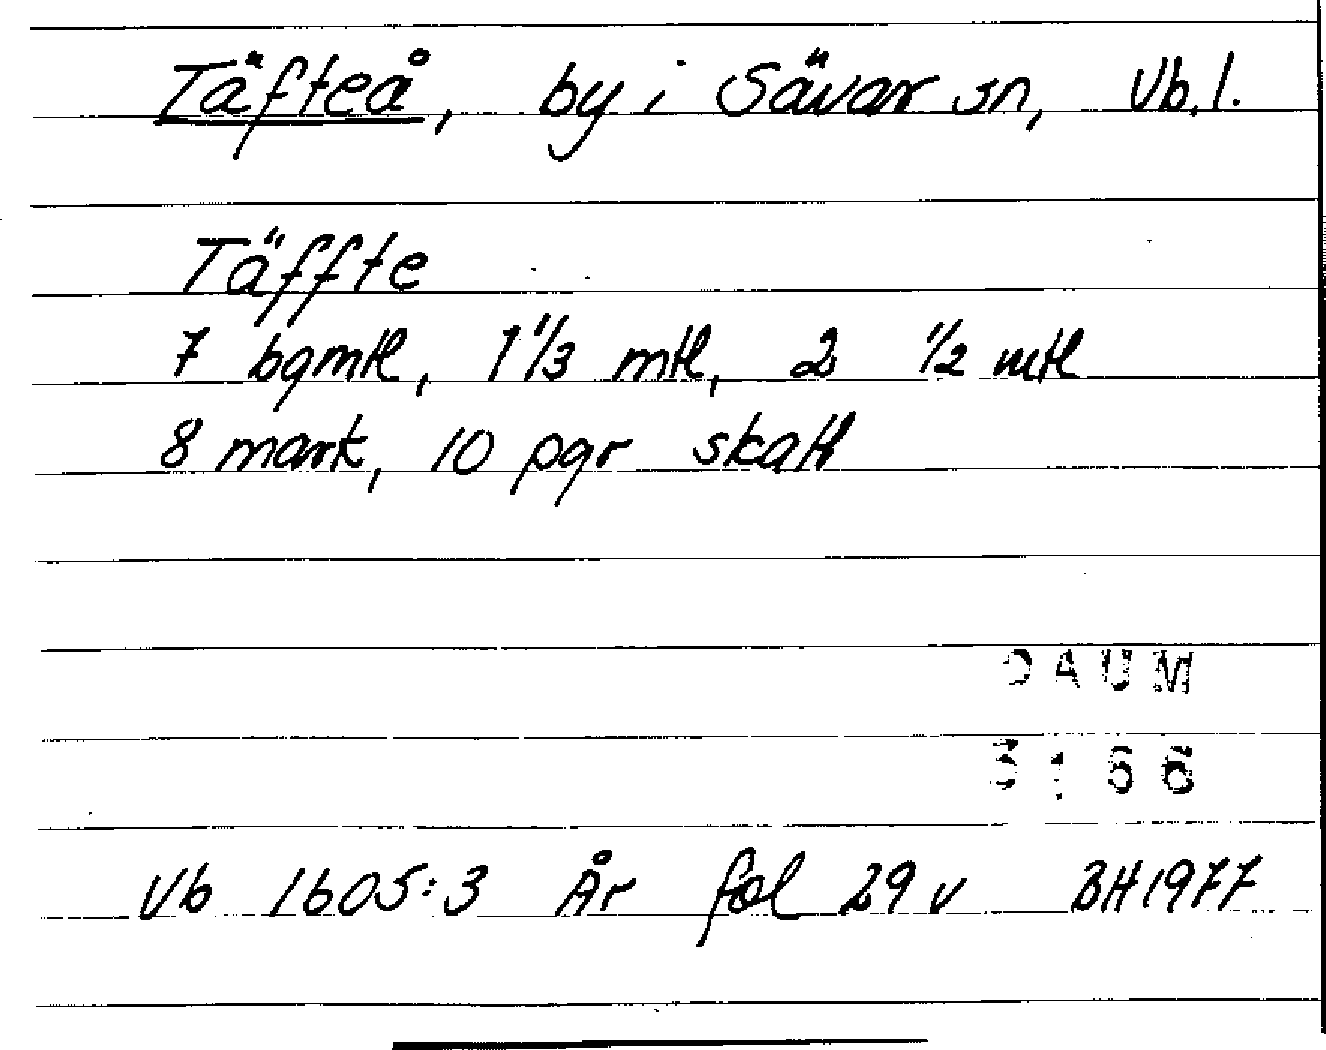 Täfteå, by i Sävar sn, Vb.l.
Täffte
7 bgmtl, 1 1/3 mtl, 2 1/2 mtl
8 mark, 10 pgr skatt
DAUM
3166
Vb 1605:3 År fol 29 v BH1977